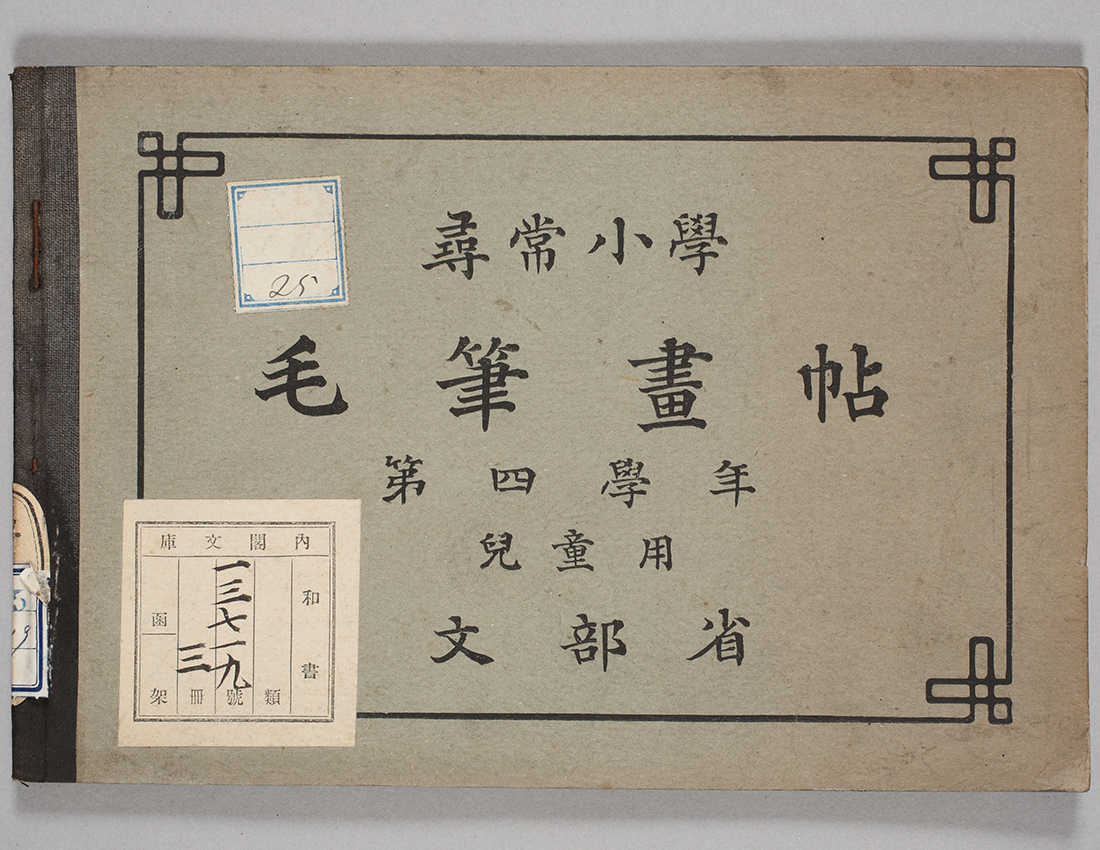 尋常小學
毛筆畫帖
第四學年
兒童用
文部省
25
内閣文庫
和書
類
一三七一九號
三冊
函
架